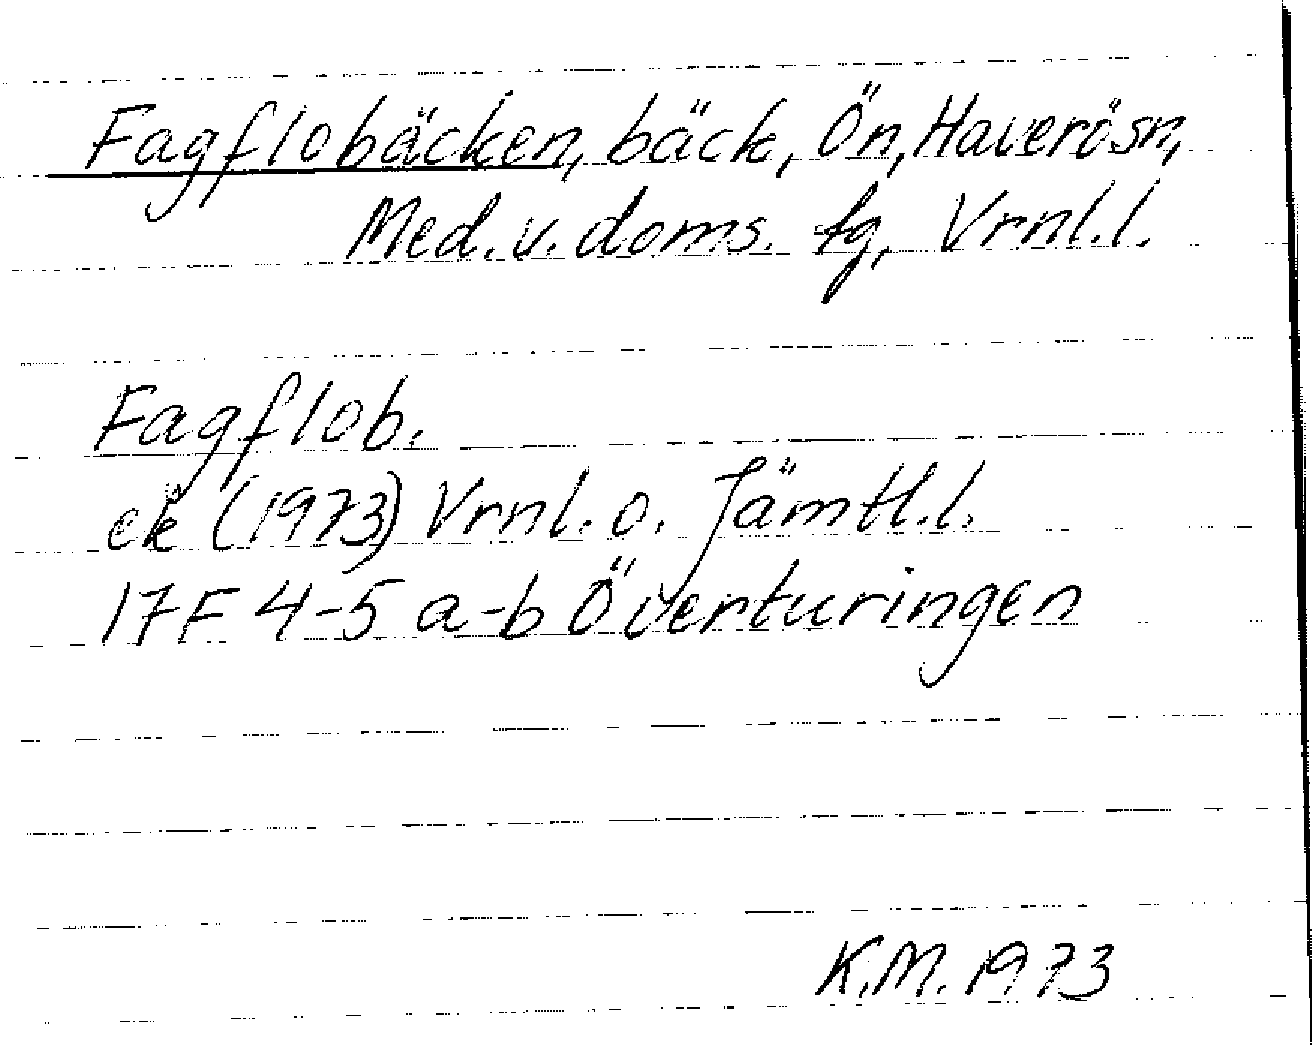 Fagflobäcken, bäck, Ön, Haverösn,
Med. v. doms. tg, Vrnl.l.
Fagflob.
ek (1973) Vrnl. o. Jämtl.l.
17F 4-5 a-b Överturingen
K.M. 1973